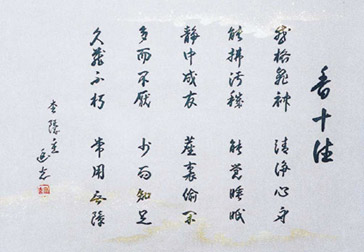 香十徳
感格鬼神　清浄心身
能拂汚穢　能覚睡眠
静中成友　塵裏偸閑
多而不厭　少而知足
久蔵不朽　常用無障